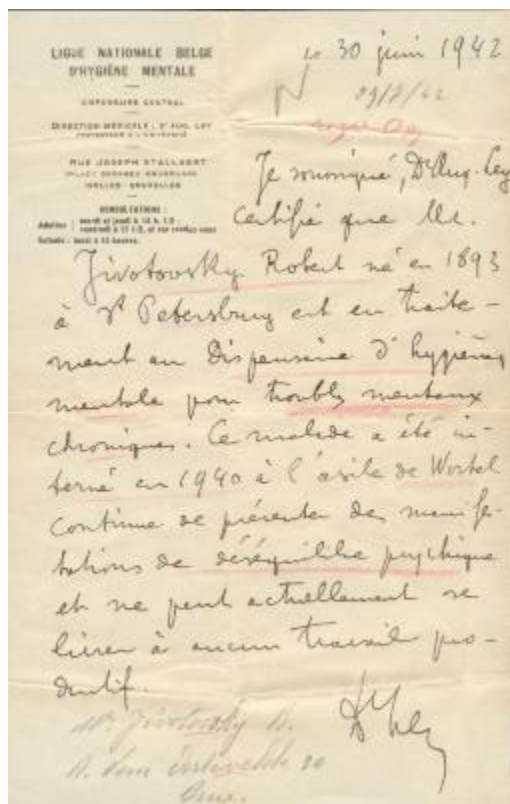 LIGUE NATIONALE BELGE
D'HYGIÈNE MENTALE
DISPENSAIRE CENTRAL
DIRECTION MÉDICALE : Dr AUG. LEY
RUE JOSEPH STALLAERT
IXELLES - BRUXELLES
CONSULTATIONS :
Adultes : mardi et jeudi à
vendredi à et sur rendez-vous
Enfants : lundi à heures.
Le 30 juin 1942
Je soussigné, Dr Aug. Ley
certifie que Mr.
Jivotovsky Robert né en 1893
à St Petersburg est en traite-
ment au Dispensaire d'hygiène
mentale pour troubles mentaux
chroniques. Ce malade a été in-
terné en 1940 à l'asile de Wortel
continue de présenter des manifes-
tations de déséquilibre psychique
et ne peut actuellement se
livrer à aucun travail pro-
ductif.
Dr Ley
Mr. Jivotovsky R.